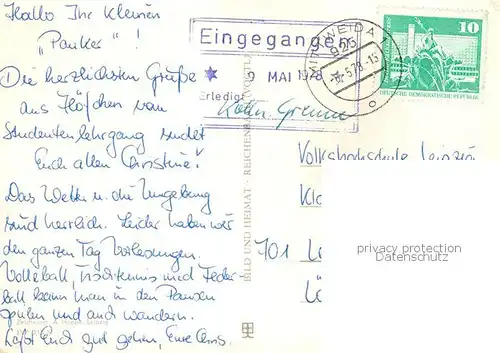 Hallo Ihr kleinen
"Panker"!
Die herzlichsten Grüße
aus Höfchen vom
Studentenlehrgang sendet
Euch allen Christine!
Das Wetter u. die Umgebung
sind herrlich. Leider haben wir
den ganzen Tag Vorlesungen.
Volleyball, Tischtennis und Feder-
ball kann man in den Pausen
spielen und auch wandern.
Laßt Euch gut gehen, Eure
Eingegangen
9 MAI 1978
Erledigt
MITTWEIDA 1
925
-8.-5.78.-15
10
DEUTSCHE DEMOKRATISCHE REPUBLIK
BILD UND HEIMAT · REICHENBACH
Volkshochschule Leipzig
701
privacy protection
Datenschutz